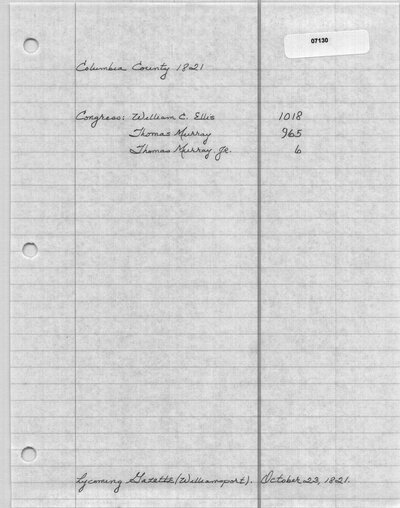 07130
Columbia County 1821
Congress: William C. Ellis 1018
Thomas Murray 965
Thomas Murray, Jr. 6
Lycoming Gazette (Williamsport). October 23, 1821.